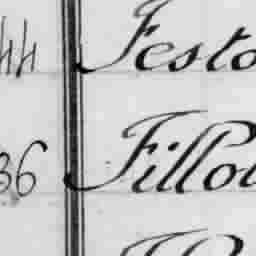 44 Festo
36 Fillo